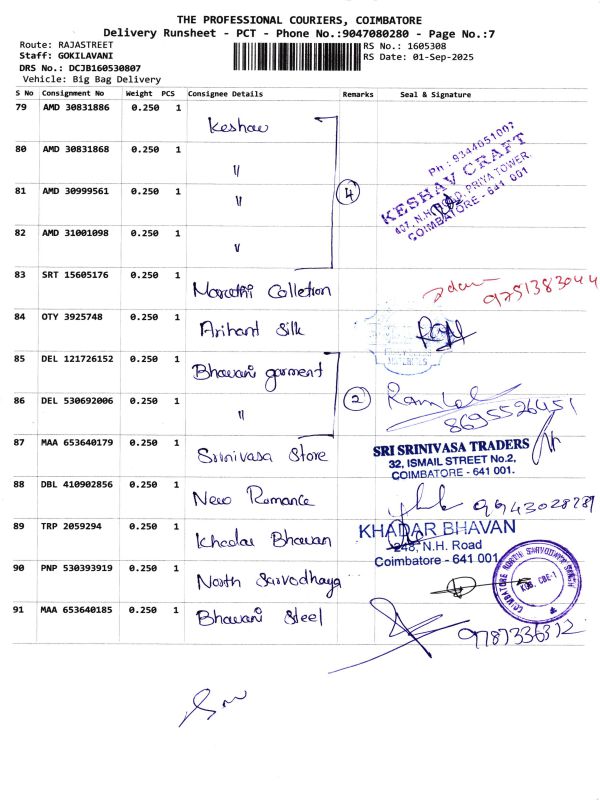 THE PROFESSIONAL COURIERS, COIMBATORE
Delivery Runsheet - PCT - Phone No.:9047080280 - Page No.:7
Route: RAJASTREET
Staff: GOKILAVANI
DRS No.: DCJB160530807
Vehicle: Big Bag Delivery
RS No.: 1605308
RS Date: 01-Sep-2025
S No Consignment No Weight PCS Consignee Details Remarks Seal & Signature
79 AMD 30831886 0.250 1 Keshav
80 AMD 30831868 0.250 1 "
81 AMD 30999561 0.250 1 " 4
82 AMD 31001098 0.250 1 "
Ph : 9344051007
KESHAV CRAFT
407, N.H. ROAD, PRIYA TOWER,
COIMBATORE - 641 001
83 SRT 15605176 0.250 1 Marathi Colletion 9751383044
84 OTY 3925748 0.250 1 Arihant Silk
85 DEL 121726152 0.250 1 Bhavani garment
86 DEL 530692006 0.250 1 " 2 8695526451
87 MAA 653640179 0.250 1 Srinivasa Store
SRI SRINIVASA TRADERS
32, ISMAIL STREET No.2,
COIMBATORE - 641 001.
88 DBL 410902856 0.250 1 New Romance
89 TRP 2059294 0.250 1 Khadar Bhavan
KHADAR BHAVAN
248, N.H. Road
Coimbatore - 641 001
90 PNP 530393919 0.250 1 North Sarvodhaya
COIMBATORE NORTH SARVODAYA SANGH
91 MAA 653640185 0.250 1 Bhavani Steel 9787336372